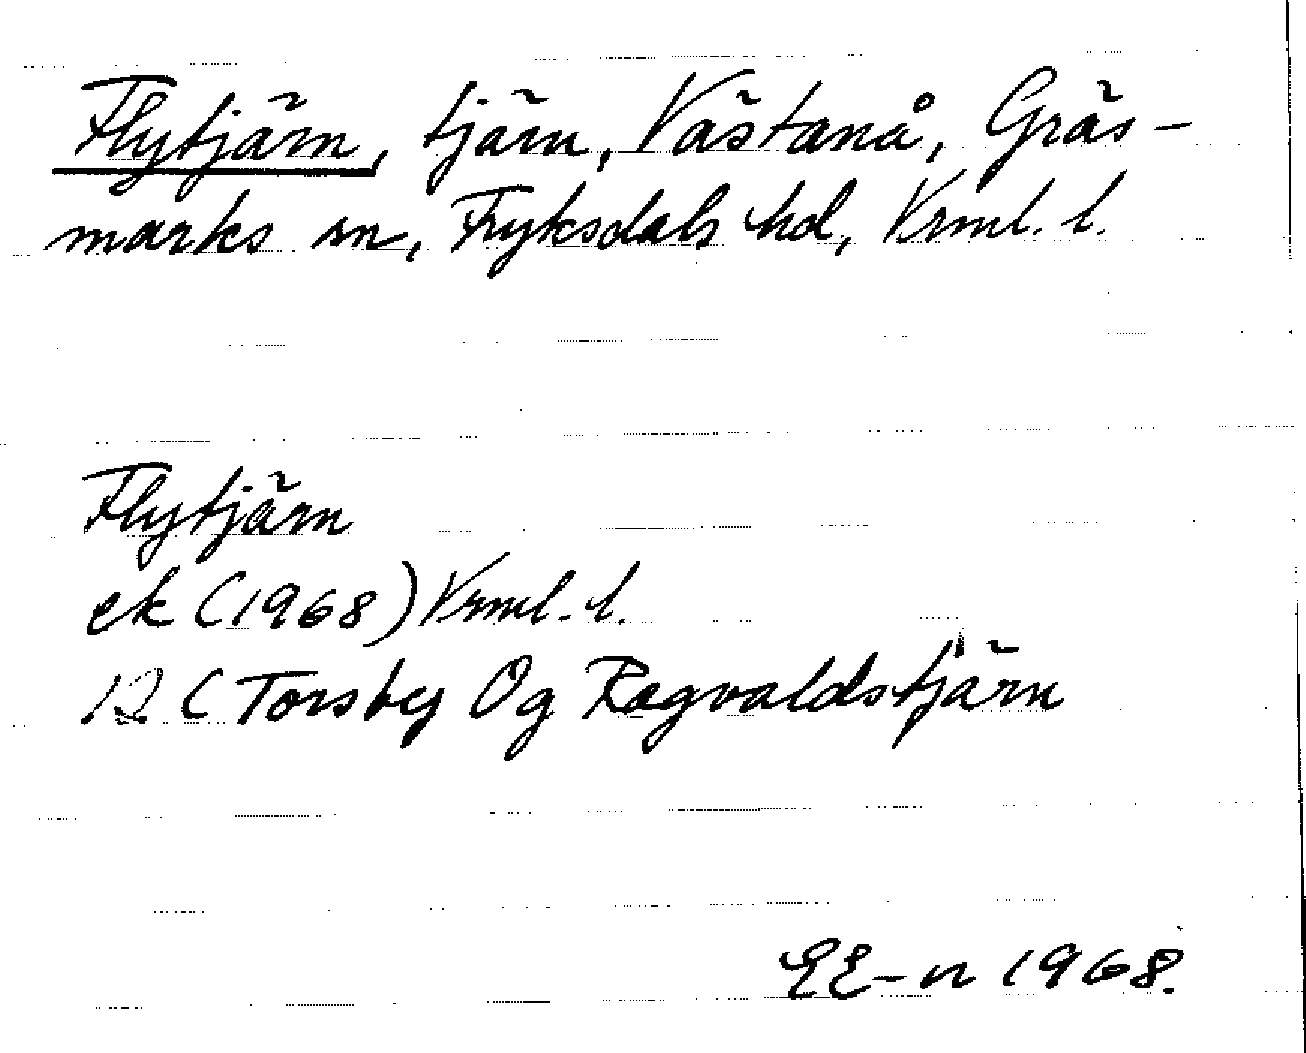 Flytjärn, tjärn, Västanå, Gräs-
marks sn, Fryksdals hd, Vrml. l.
Flytjärn
ek (1968) Vrml. l.
12 C Torsby Og Ragvaldstjärn
EE-n 1968.